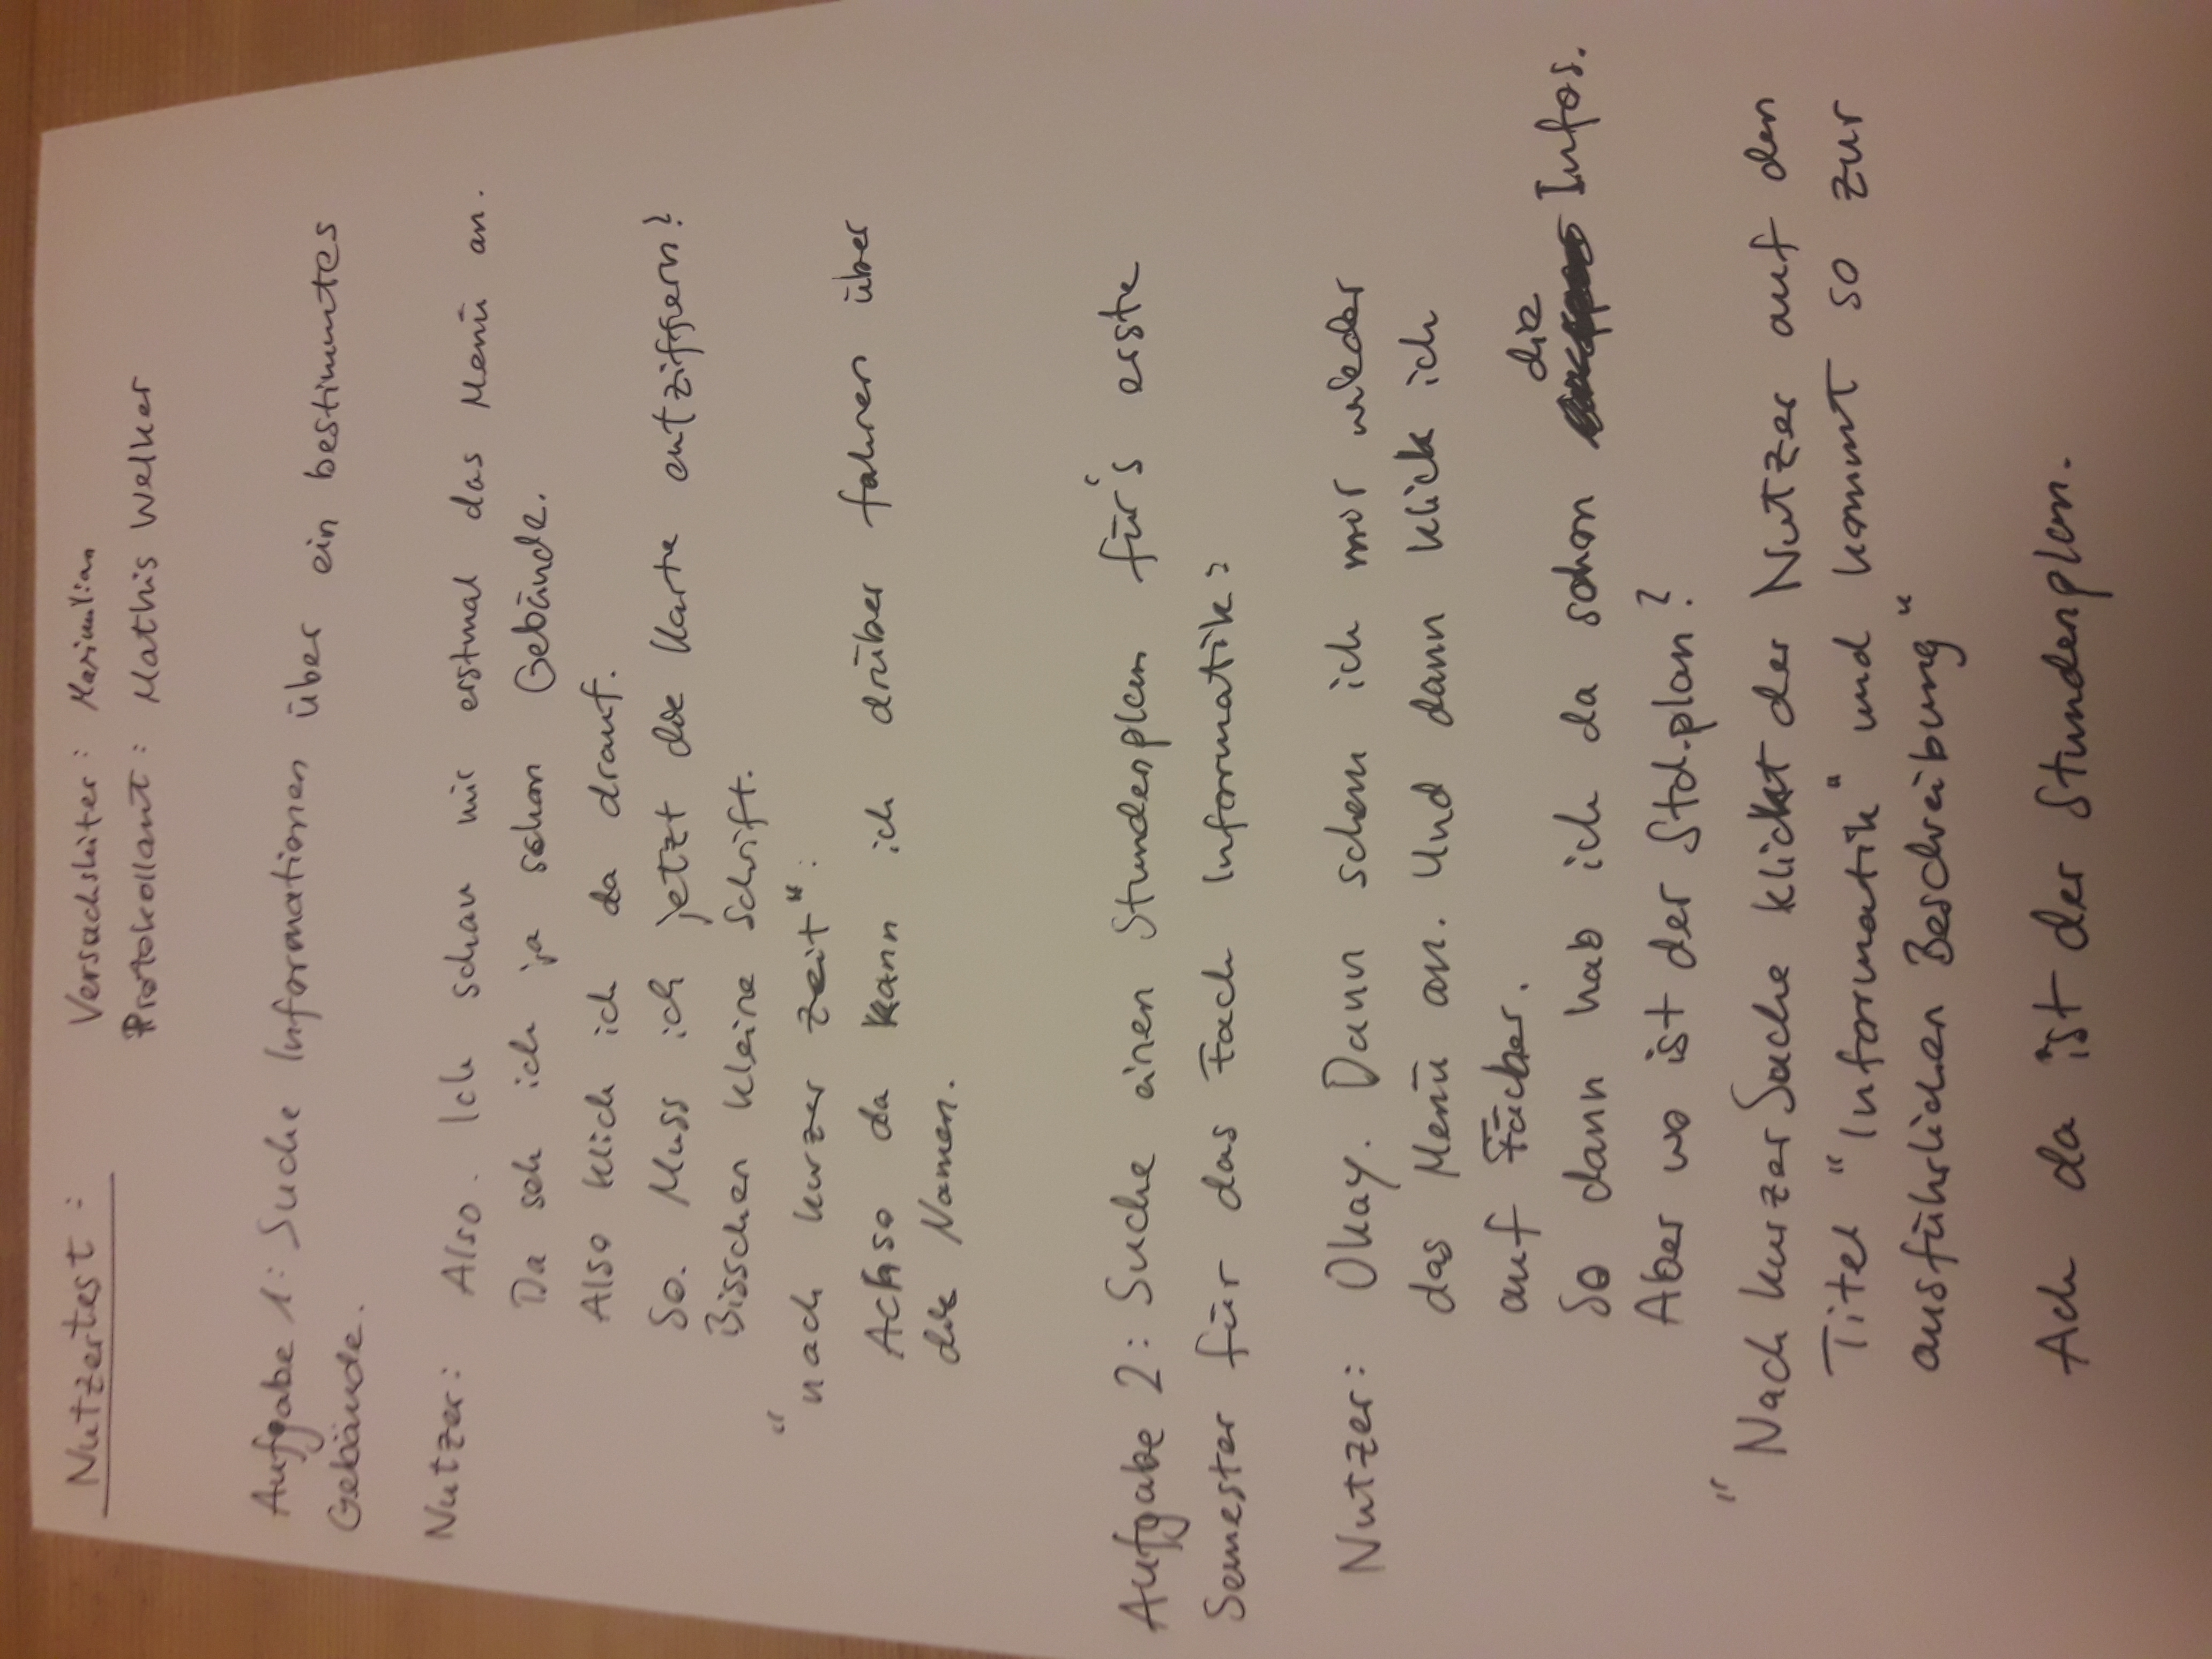 Nutzertest: Versuchsleiter: Maximilian
Protokollant: Mathis Welker
Aufgabe 1: Suche Informationen über ein bestimmtes
Gebäude.
Nutzer: Also. Ich schau mir erstmal das Menü an.
Da seh ich ja schon Gebäude.
Also klick ich da drauf.
So. Muss ich jetzt die Karte entziffern?
Bisschen kleine Schrift.
"nach kurzer Zeit":
Achso da kann ich drüber fahren über
die Namen.
Aufgabe 2: Suche einen Stundenplan für's erste
Semester für das Fach Informatik:
Nutzer: Okay. Dann schau ich mir wieder
das Menü an. Und dann klick ich
auf Fächer.
So dann hab ich da schon die Infos.
Aber wo ist der Std.plan?
"Nach kurzer Suche klickt der Nutzer auf den
Titel "Informatik" und kommt so zur
ausführlichen Beschreibung"
Ach da ist der Stundenplan.